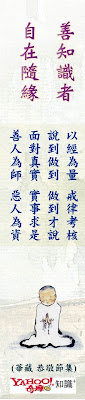 善知識者
自在隨緣
以經為量 戒律考核
說到做到 做到才說
面對真實 實事求是
善人為師 惡人為資
(華藏 恭敬節集)
YAHOO!奇摩 知識+